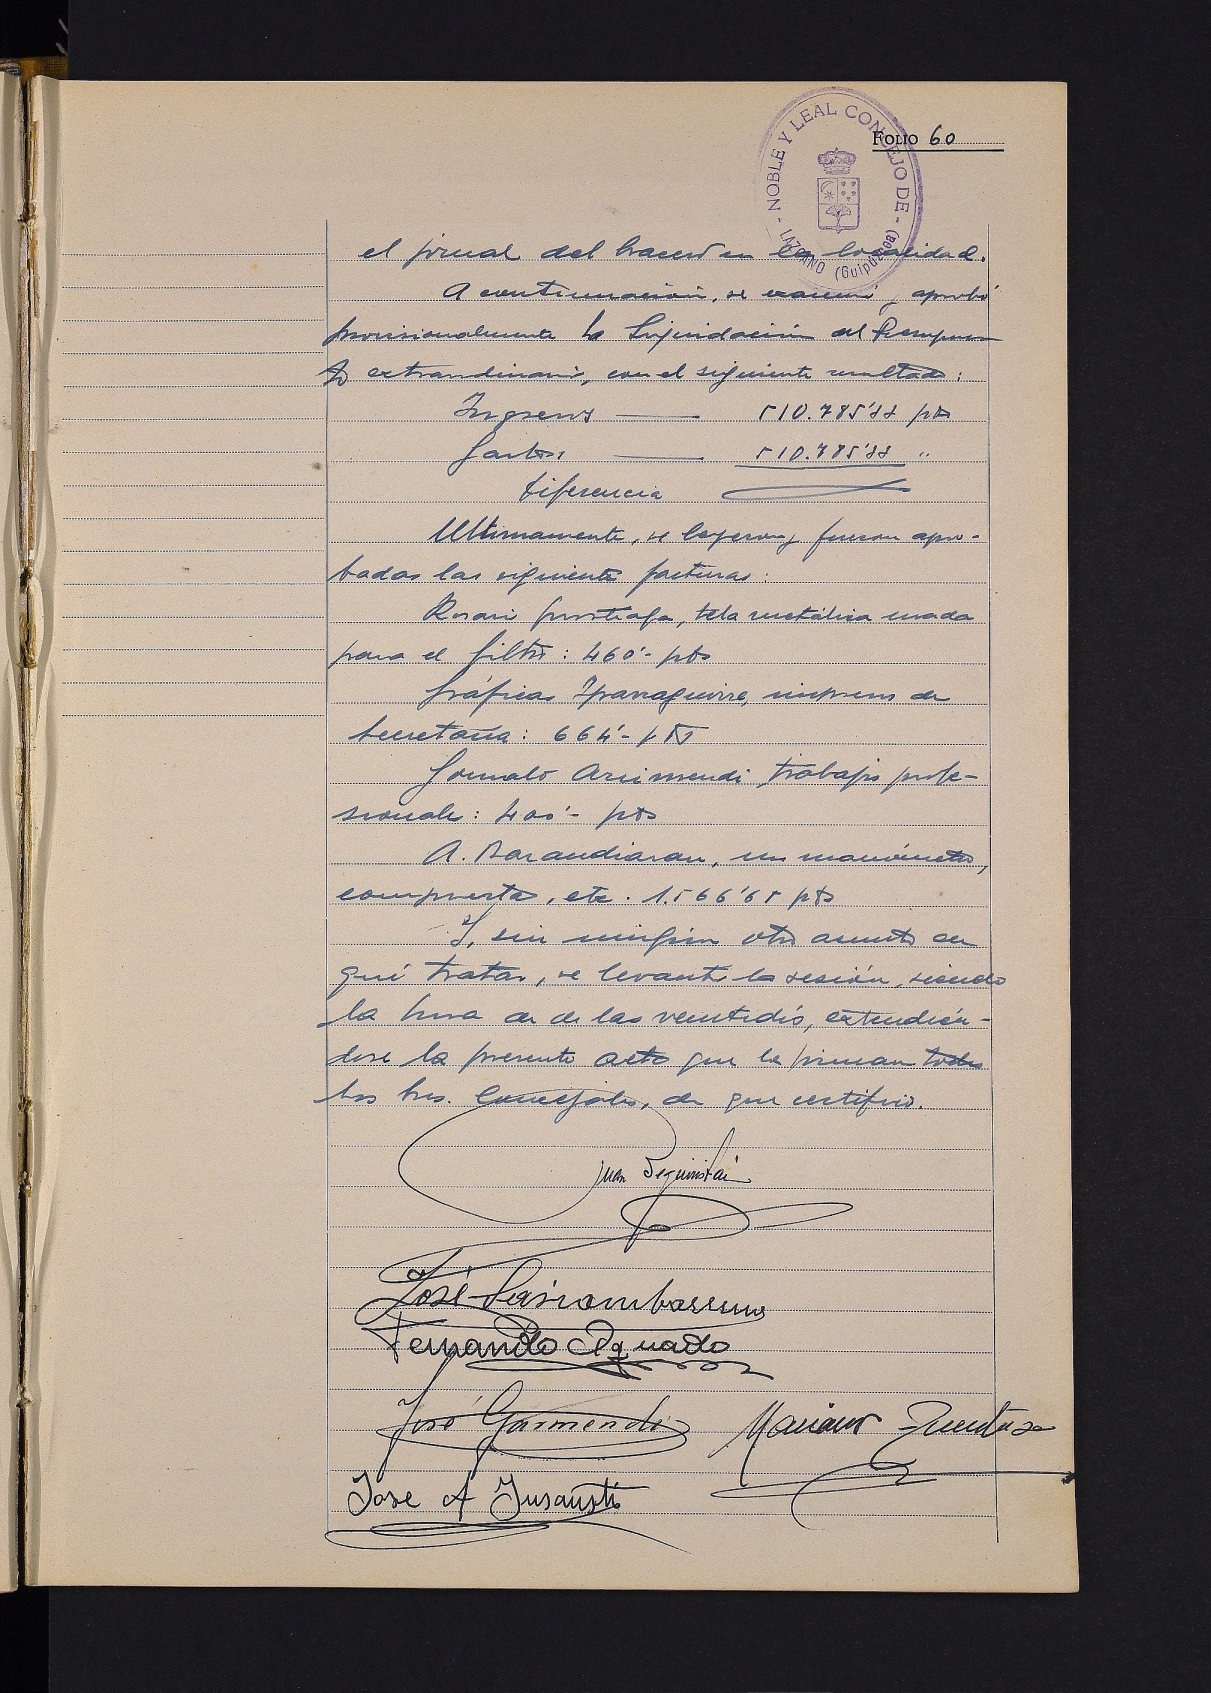 FOLIO 60
NOBLE Y LEAL CONCEJO DE
LAZCANO (Guipúzcoa)
el jornal del bracero en la localidad.
A continuación, se examinó y aprobó
provisionalmente la Liquidación del Presupues
to extraordinario, con el siguiente resultado:
Ingresos — 510.785'88 pts
Gastos — 510.785'88 "
Diferencia
Ultimamente, se leyeron y fueron apro-
badas las siguientes facturas:
Rosario tela metálica usada
para el filtro: 460'- pts
Gráficas Yparraguirre, impresos de
Secretaría: 664'- pts
Gonzalo Arizmendi trabajos profe-
sionales: 400'- pts
A. Barandiaran, un manómetro,
compuerta, etc. 1.566'65 pts
Y, sin ningún otro asunto de
qué tratar, se levantó la sesión, siendo
la hora de de las veintidós, extendién-
dose la presente acta que la firman todos
los Sres. Concejales, de que certifico.
Juan Beguiristain
José
Fernando Aguado
José Garmendia
Mariano
Jose A Insausti